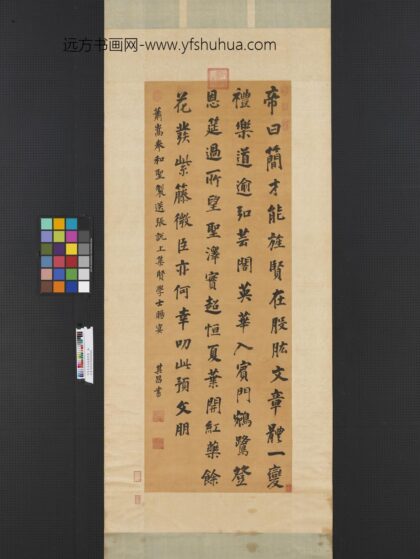 远方书画网-www.yfshuhua.com
帝曰簡才能旌賢在股肱文章體一變
禮樂道逾弘芸閣英華入賓門鵷鷺登
恩筵過所望聖澤實超恒夏葉開紅藥餘
花發紫藤微臣亦何幸叨此預文朋
蕭嵩奉和聖製送張說上集賢學士賜宴 其昌書